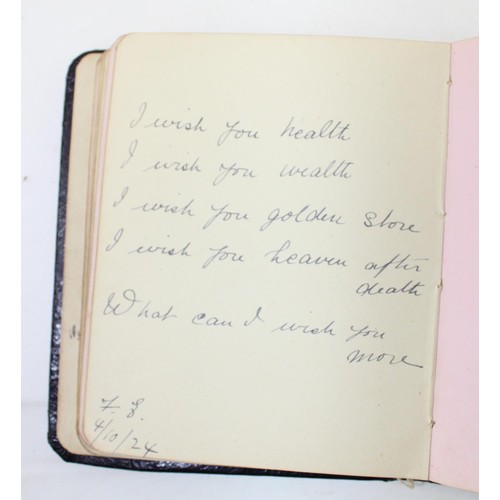 I wish you health
I wish you wealth
I wish you golden store
I wish you heaven after
death
What can I wish you
more
4/10/24